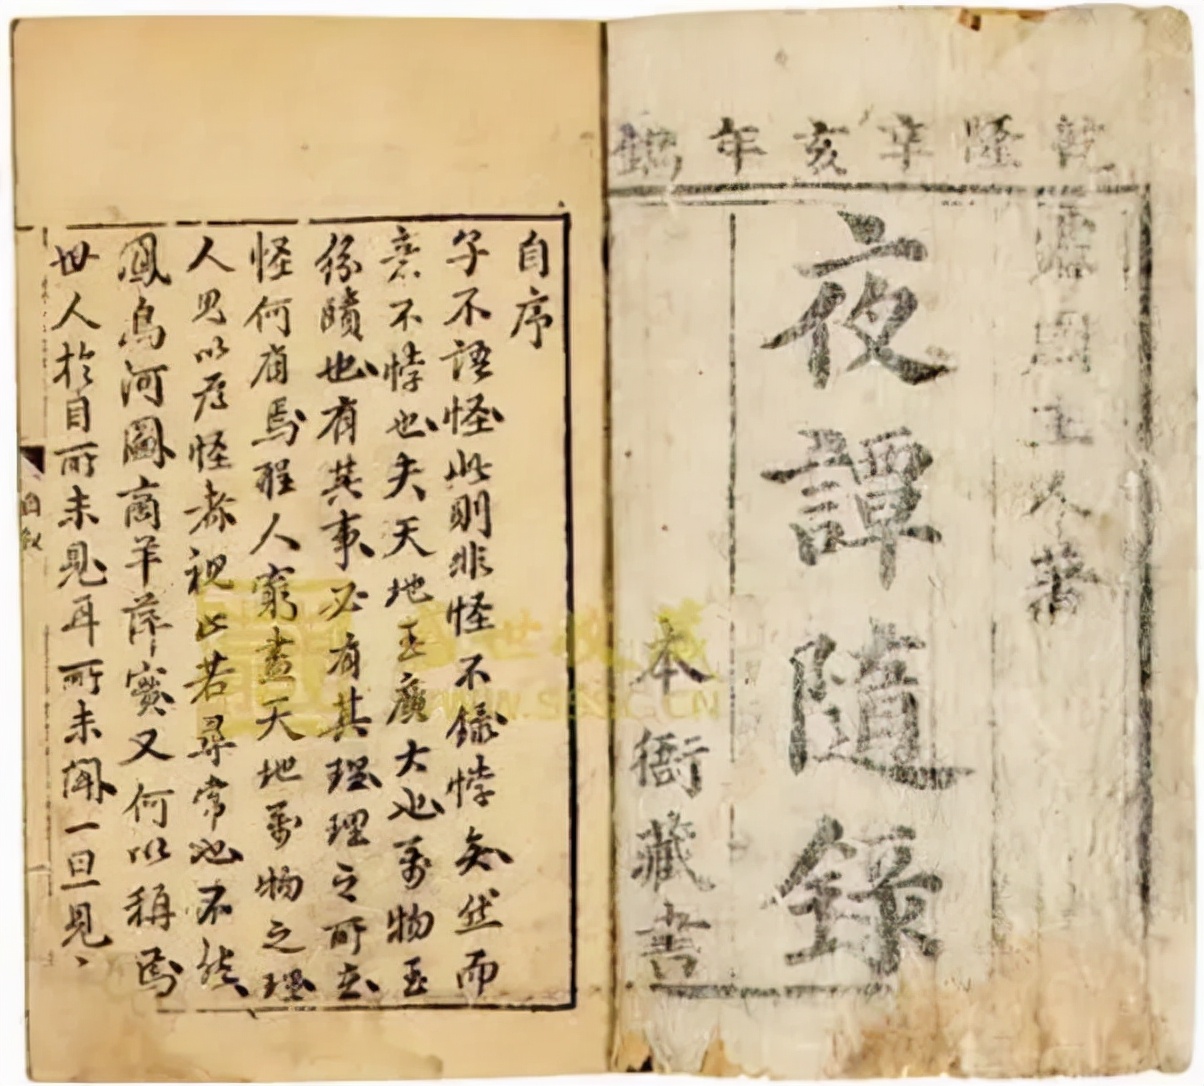 乾隆辛亥年鐫
霽園主人著
夜譚隨錄
本衙藏書
自序
子不語怪此則非怪不錄悖矣然而
意不悖也夫天地至廣大也萬物至
紛賾也有其事必有其理理之所在
怪何有焉聖人窮盡天地萬物之理
人見以為怪者視此若尋常也不然
鳳鳥河圖商羊萍實又何以稱焉
世人於目所未見耳所未聞一旦見、
自敘
盛世收藏
WWW.SSSC.CN